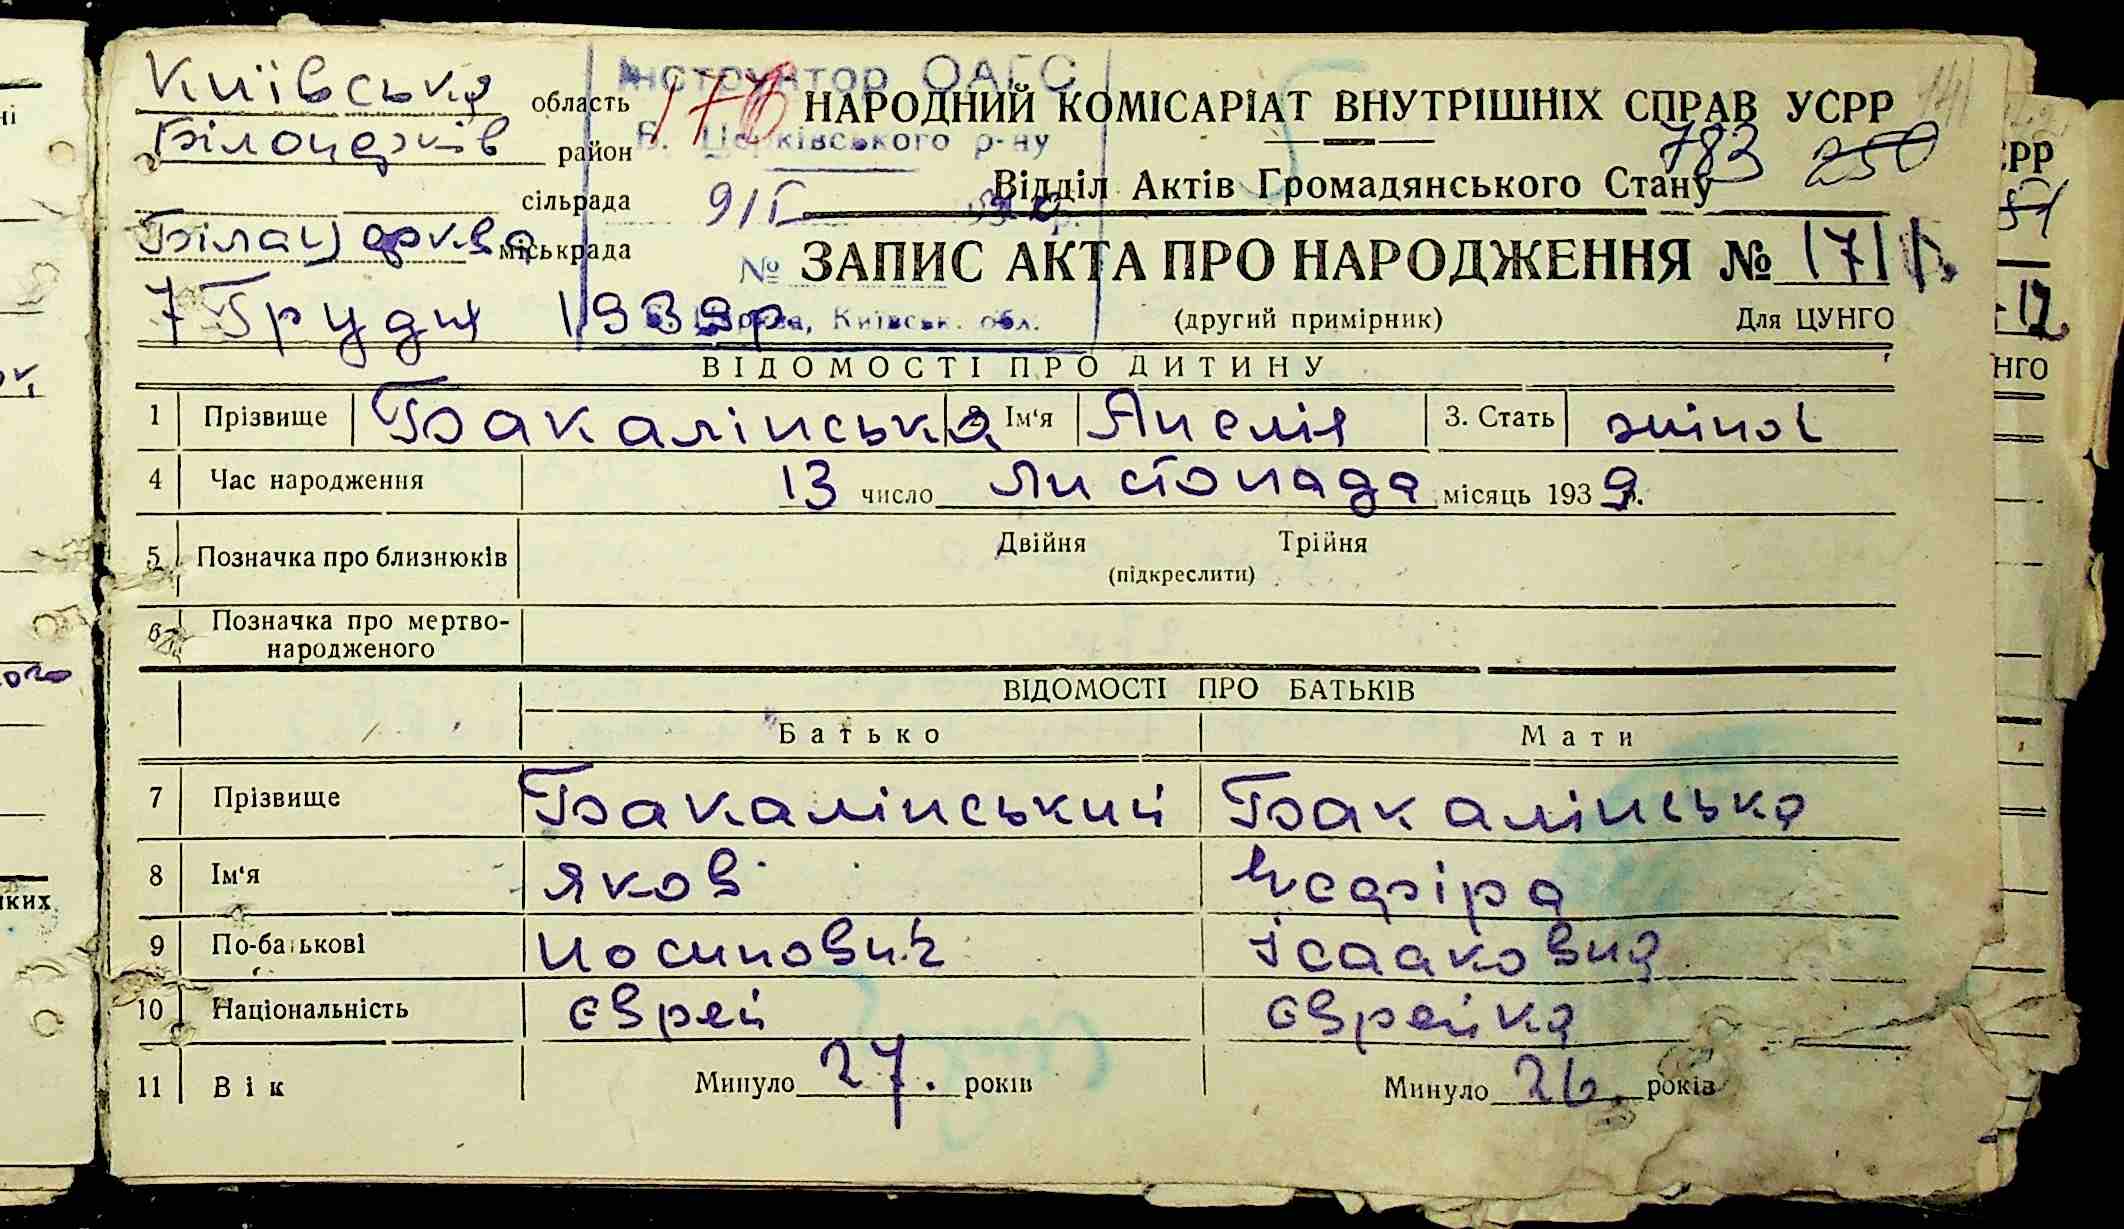 Київська область
Білоцерків район
сільрада
Біла Церква міськрада
7 Грудня 1939 р.
Інструктор ОАГС
Б. Церківського р-ну
9/I
№
Київськ. обл.
178
НАРОДНИЙ КОМІСАРІАТ ВНУТРІШНІХ СПРАВ УСРР
783 250
Відділ Актів Громадянського Стану
ЗАПИС АКТА ПРО НАРОДЖЕННЯ № 171
(другий примірник) Для ЦУНГО
ВІДОМОСТІ ПРО ДИТИНУ
1 Прізвище Бакалінська 2 Ім'я Анелія 3. Стать жіноч
4 Час народження 13 число Листопада місяць 1939 р.
5 Позначка про близнюків Двійня Трійня
(підкреслити)
6 Позначка про мертво-
народженого
ВІДОМОСТІ ПРО БАТЬКІВ
Батько Мати
7 Прізвище Бакалінський Бакалінська
8 Ім'я Яков
9 По-батькові Иосипович Ісааковна
10 Національність єврей єврейка
11 Вік Минуло 27. років Минуло 26. років